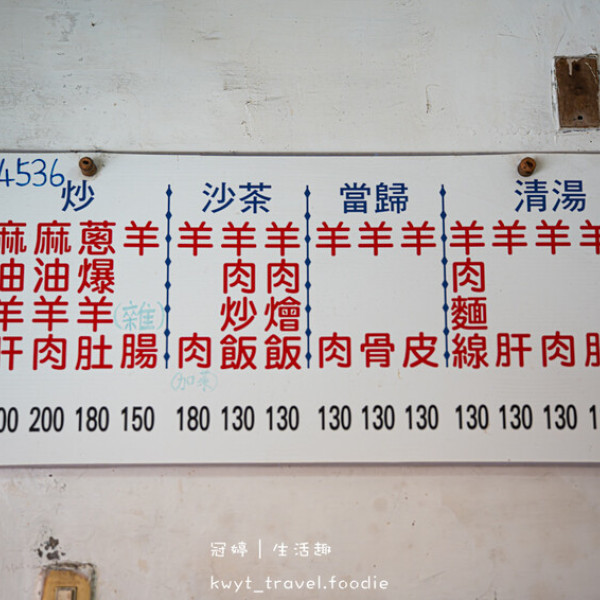 4536
炒
麻油羊肝
00
麻油羊肉
200
蔥爆羊肚
180
羊(雜)腸
150
沙茶
羊肉
(加菜)
180
羊肉炒飯
130
羊肉燴飯
130
當歸
羊肉
130
羊骨
130
羊皮
130
清湯
羊肉麵線
130
羊肝
130
羊肉
130
羊
冠婷｜生活趣
kwyt_travel.foodie